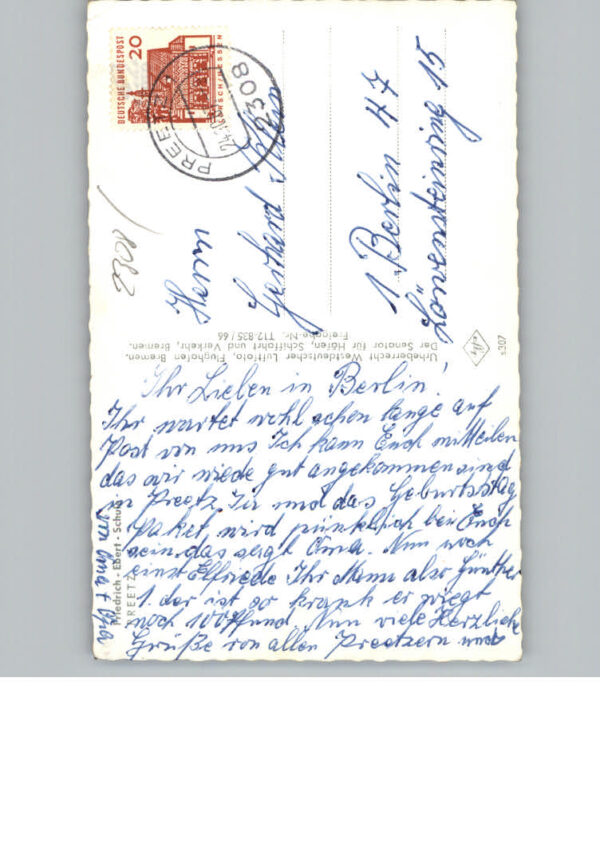 DEUTSCHE BUNDESPOST
20
LORSCH/HESSEN
2308
PREETZ
Herrn
Gerhard
1 Berlin 47
Löwensteinring 15
Urheberrecht Westdeutscher Luftfoto, Flughafen Bremen.
Der Senator für Häfen, Schiffahrt und Verkehr, Bremen.
Freigabe-Nr. T12.835/66
s 307
Ihr Lieben in Berlin!
Ihr wartet wohl schon lange auf
Post von uns Ich kann Euch mitteilen
das wir wiede gut angekommen sind
in Preetz. und das Geburtstag
Paket wird pünklich bei Euch
sein, das sagt Oma. Nun noch
eins Elfriede Ihr Mann also Günther
1. der ist so krank er wiegt
noch 100 Pfund. Nun viele Herzliche
Grüße von allen Preetzern und
von Oma + Opa
Friedrich-Ebert-Schule
PREETZ